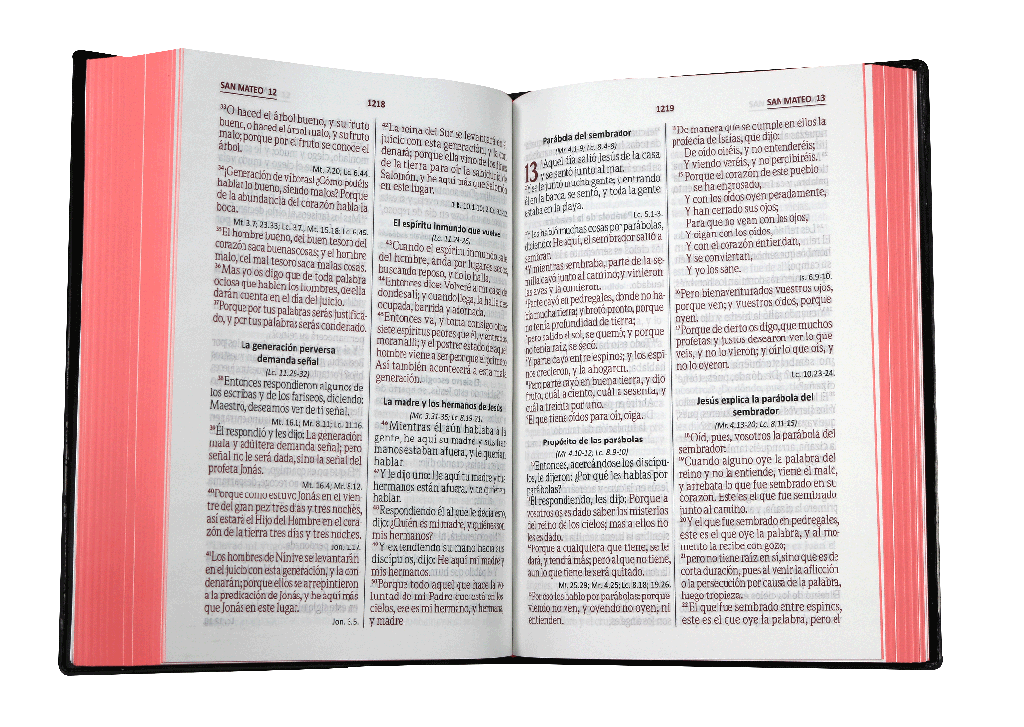 SAN MATEO 12
1218
33O haced el árbol bueno, y su fruto
bueno, o haced el árbol malo, y su fruto
malo; porque por el fruto se conoce el
árbol.
Mt. 7.20; Lc. 6.44.
34¡Generación de víboras! ¿Cómo podéis
hablar lo bueno, siendo malos? Porque
de la abundancia del corazón habla la
boca.
Mt. 3.7; 23.33; Lc. 3.7. Mt. 15.18; Lc. 6.45.
35El hombre bueno, del buen tesoro del
corazón saca buenas cosas; y el hombre
malo, del mal tesoro saca malas cosas.
36Mas yo os digo que de toda palabra
ociosa que hablen los hombres, de ella
darán cuenta en el día del juicio.
37Porque por tus palabras serás justifica-
do, y por tus palabras serás condenado.
La generación perversa
demanda señal
(Lc. 11.29-32)
38Entonces respondieron algunos de
los escribas y de los fariseos, diciendo:
Maestro, deseamos ver de ti señal.
Mt. 16.1; Mr. 8.11; Lc. 11.16.
39Él respondió y les dijo: La generación
mala y adúltera demanda señal; pero
señal no le será dada, sino la señal del
profeta Jonás.
Mt. 16.4; Mr. 8.12.
40Porque como estuvo Jonás en el vien-
tre del gran pez tres días y tres noches,
así estará el Hijo del Hombre en el cora-
zón de la tierra tres días y tres noches.
Jon. 1.17.
41Los hombres de Nínive se levantarán
en el juicio con esta generación, y la con-
denarán; porque ellos se arrepintieron
a la predicación de Jonás, y he aquí más
que Jonás en este lugar.
Jon. 3.5.
42La reina del Sur se levantará en el
juicio con esta generación, y la con-
denará; porque ella vino de los fines
de la tierra para oír la sabiduría de
Salomón, y he aquí más que Salomón
en este lugar.
El espíritu inmundo que vuelve
(Lc. 11.24-26)
43Cuando el espíritu inmundo sale
del hombre, anda por lugares secos,
buscando reposo, y no lo halla.
44Entonces dice: Volveré a mi casa de
donde salí; y cuando llega, la halla des-
ocupada, barrida y adornada.
45Entonces va, y toma consigo otros
siete espíritus peores que él, y entrados,
moran allí; y el postrer estado de aquel
hombre viene a ser peor que el primero.
Así también acontecerá a esta mala
generación.
La madre y los hermanos de Jesús
(Mr. 3.31-35; Lc. 8.19-21)
46Mientras él aún hablaba a la
gente, he aquí su madre y sus her-
manos estaban afuera, y le querían
hablar.
47Y le dijo uno: He aquí tu madre y tus
hermanos están afuera, y te quieren
hablar.
48Respondiendo él al que le decía esto,
dijo: ¿Quién es mi madre, y quiénes son
mis hermanos?
49Y extendiendo su mano hacia sus
discípulos, dijo: He aquí mi madre y
mis hermanos.
50Porque todo aquel que hace la vo-
luntad de mi Padre que está en los
cielos, ese es mi hermano, y hermana,
y madre
1219
SAN MATEO 13
Parábola del sembrador
(Mr. 4.1-9; Lc. 8.4-8)
13 1Aquel día salió Jesús de la casa
y se sentó junto al mar.
2Y se le juntó mucha gente; y entrando
él en la barca, se sentó, y toda la gente
estaba en la playa.
Lc. 5.1-3.
3Y les habló muchas cosas por parábolas,
diciendo: He aquí, el sembrador salió a
sembrar.
4Y mientras sembraba, parte de la se-
milla cayó junto al camino; y vinieron
las aves y la comieron.
5Parte cayó en pedregales, donde no ha-
bía mucha tierra; y brotó pronto, porque
no tenía profundidad de tierra;
6pero salido el sol, se quemó; y porque
no tenía raíz, se secó.
7Y parte cayó entre espinos; y los espi-
nos crecieron, y la ahogaron.
8Pero parte cayó en buena tierra, y dio
fruto, cuál a ciento, cuál a sesenta, y
cuál a treinta por uno.
9El que tiene oídos para oír, oiga.
Propósito de las parábolas
(Mr. 4.10-12; Lc. 8.9-10)
10Entonces, acercándose los discípu-
los, le dijeron: ¿Por qué les hablas por
parábolas?
11Él respondiendo, les dijo: Porque a
vosotros os es dado saber los misterios
del reino de los cielos; mas a ellos no
les es dado.
12Porque a cualquiera que tiene, se le
dará, y tendrá más; pero al que no tiene,
aun lo que tiene le será quitado.
Mt. 25.29; Mr. 4.25; Lc. 8.18; 19.26.
13Por eso les hablo por parábolas: porque
viendo no ven, y oyendo no oyen, ni
entienden.
14De manera que se cumple en ellos la
profecía de Isaías, que dijo:
De oído oiréis, y no entenderéis;
Y viendo veréis, y no percibiréis.
15Porque el corazón de este pueblo
se ha engrosado,
Y con los oídos oyen pesadamente,
Y han cerrado sus ojos;
Para que no vean con los ojos,
Y oigan con los oídos,
Y con el corazón entiendan,
Y se conviertan,
Y yo los sane.
Is. 6.9-10.
16Pero bienaventurados vuestros ojos,
porque ven; y vuestros oídos, porque
oyen.
17Porque de cierto os digo, que muchos
profetas y justos desearon ver lo que
veis, y no lo vieron; y oír lo que oís, y
no lo oyeron.
Lc. 10.23-24.
Jesús explica la parábola del
sembrador
(Mr. 4.13-20; Lc. 8.11-15)
18Oíd, pues, vosotros la parábola del
sembrador:
19Cuando alguno oye la palabra del
reino y no la entiende, viene el malo,
y arrebata lo que fue sembrado en su
corazón. Este es el que fue sembrado
junto al camino.
20Y el que fue sembrado en pedregales,
este es el que oye la palabra, y al mo-
mento la recibe con gozo;
21pero no tiene raíz en sí, sino que es de
corta duración, pues al venir la aflicción
o la persecución por causa de la palabra,
luego tropieza.
22El que fue sembrado entre espinos,
este es el que oye la palabra, pero el